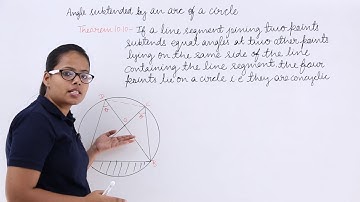 Angle subtended by an arc of a circle
Theorem 10.10:- If a line segment joining two points
subtends equal angles at two other points
lying on the same side of the line
containing the line segment the four
points lie on a circle i.e they are concyclic